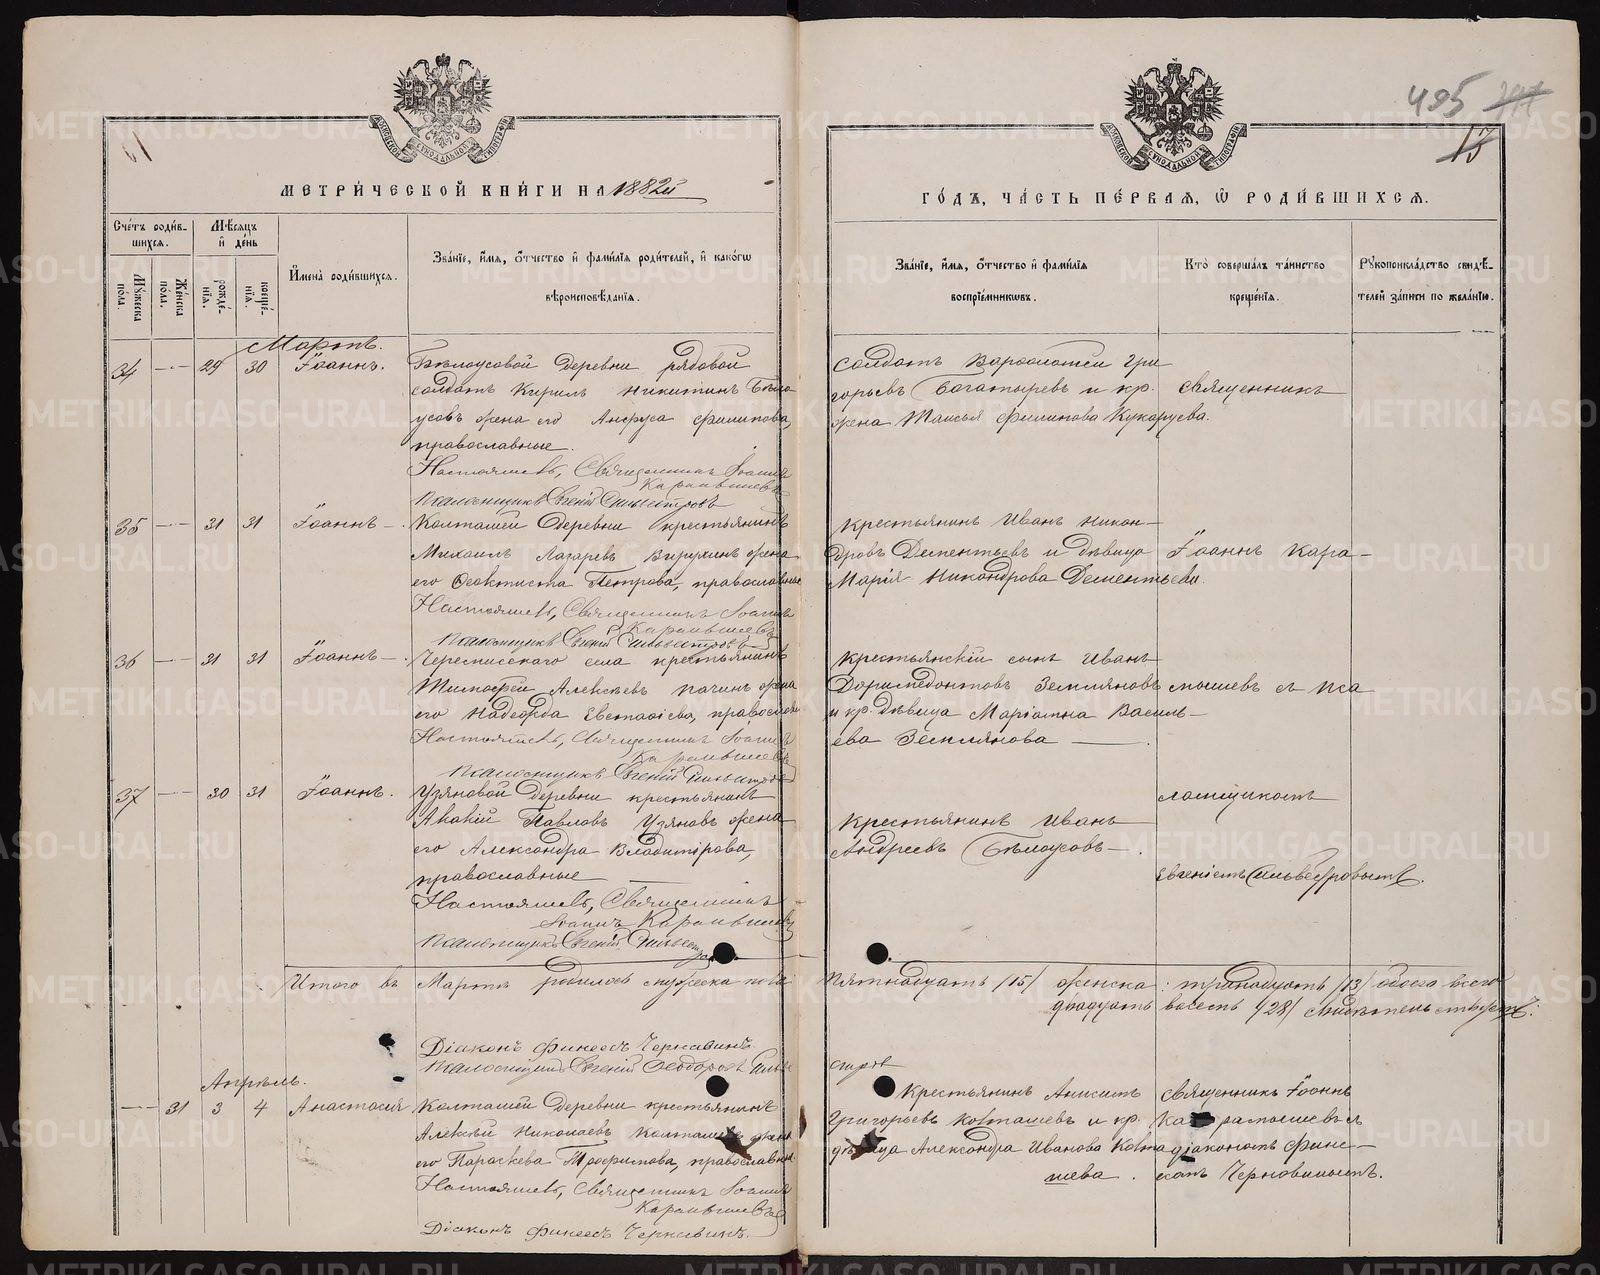 495
13
МЕТРИЧЕСКОЙ КНИГИ НА 1882й
ГОДЪ, ЧАСТЬ ПЕРВАЯ, Ѡ РОДИВШИХСЯ.
Счетъ родив-
шихся.
Мѣсяцъ
и день
Имена родившихся.
Званіе, имя, отчество и фамилія родителей, и какого
вѣроисповѣданія.
Званіе, имя, отчество и фамилія
воспріемниковъ.
Кто совершалъ таинство
крещенія.
Рукоприкладство свидѣ-
телей записи по желанію.
Мужеска пола.
Женска пола.
рожде-нія.
креще-нія.
Мартъ.
34 29 30 Іоаннъ.
Бѣлоусовой деревни рядовой
солдатъ Кирилъ Никитинъ Бѣло
усовъ жена его Анфуса Филипова,
православные.
Настоятель, Священникъ Іоаннъ
Карашевъ
Псаломщикъ Евгеній Сильвестровъ
Солдатъ Варфоломей Гри
горьевъ Богатыревъ и кр.
жена Таисья Филипова Кукарцева.
Священникъ
35 31 31 Іоаннъ
Колташей деревни крестьянинъ
Михаилъ Лазаревъ жена
его Феоктиста Петрова, православные
Настоятель, Священникъ Іоаннъ
Псаломщикъ Евгеній Сильвестровъ
Крестьянинъ Иванъ Никан-
дровъ Дементьевъ и дѣвица
Марія Никандрова Дементьева.
Іоаннъ Кара-
36 31 31 Іоаннъ
Черемисскаго села крестьянинъ
Тимофей Алексѣевъ жена
его Надежда Евстафіева, православные
Настоятель, Священникъ Іоаннъ
Псаломщикъ Евгеній Сильвестровъ
Крестьянскій сынъ Иванъ
Доримедонтовъ Земляновъ
и кр. дѣвица Маріамна Василь-
ева Землянова
мышевъ съ пса
37 30 31 Іоаннъ.
Узяновой деревни крестьянинъ
Акакій Павловъ Узяновъ жена
его Александра Владимірова,
православные
Настоятель, Священникъ
Іоаннъ
Псаломщикъ Евгеній
Крестьянинъ Иванъ
Андреевъ Бѣлоусовъ
ломщикомъ
Евгеніемъ Сильвестровымъ.
Итого въ Мартѣ родилось мужеска пола
пятнадцать /15/ женска: тринадцать /13/ обоего всего
двадцать восемь /28/
Діаконъ Финеесъ Чернавинъ.
Псаломщикъ Евгеній Феодоровъ Сильве
стровъ
Апрѣль.
31 3 4 Анастасія
Колташей деревни крестьянинъ
Алексѣй Николаевъ Колташевъ жена
его Параскева Трофимова, православные
Настоятель, Священникъ Іоаннъ
Діаконъ Финеесъ Чернавинъ.
Крестьянинъ Анисимъ
Григорьевъ Колташевъ и кр.
дѣвица Александра Иванова Колта
шева.
Священникъ Іоаннъ
діакономъ Фине-
есомъ Чернавинымъ.
METRIKI.GASO-URAL.RU